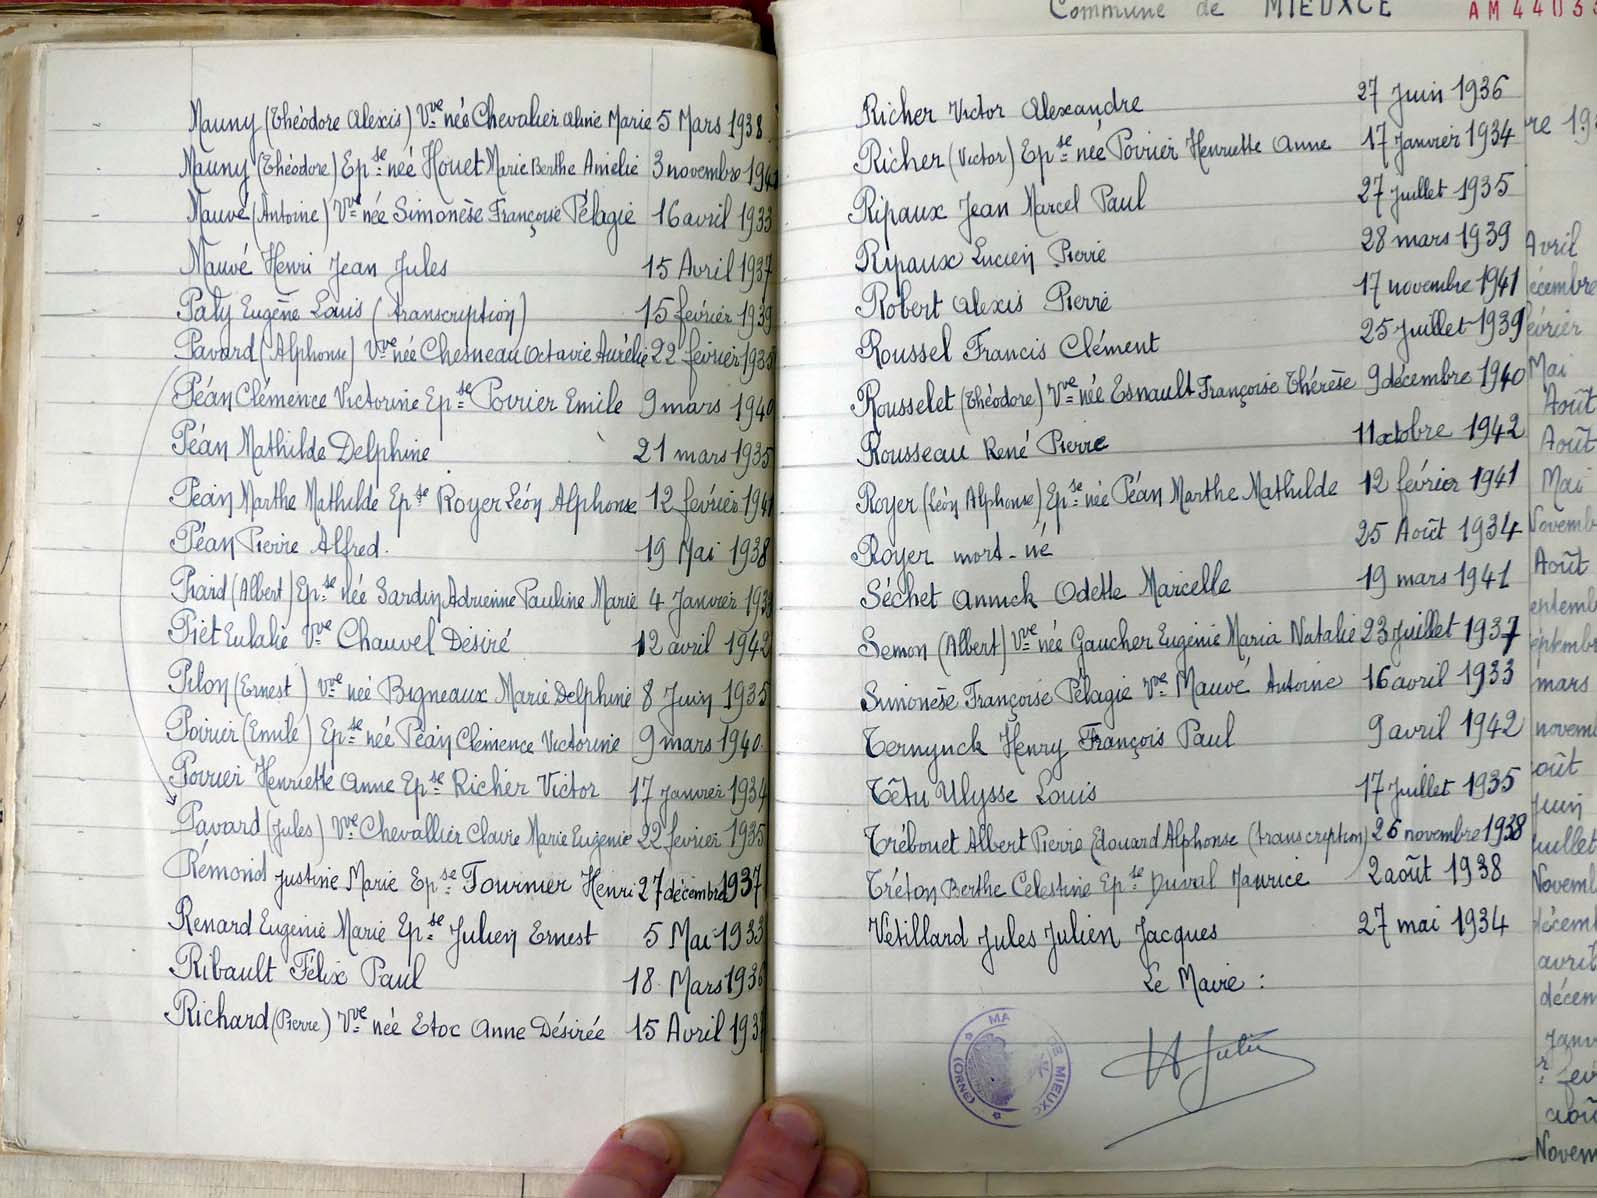 Commune de MIEUXCE
AM 4403
Mauny (Théodore Alexis) Vve née Chevalier Aline Marie 5 Mars 1938
Mauny (Théodore) Epse née Houet Marie Berthe Amélie 3 novembre 194
Mauvé (Antoine) Vve née Simonèse Françoise Pélagie 16 avril 1933
Mauvé Henri Jean Jules 15 Avril 1937
Paty Eugène Louis (transcription) 15 février 1939
Pavard (Alphonse) Vve née Chesneau Octavie Aurélie 22 février 1935
Péan Clémence Victorine Epse Poirier Emile 9 mars 1940
Péan Mathilde Delphine 21 mars 1935
Péan Marthe Mathilde Epse Royer Léon Alphonse 12 février 1941
Péan Pierre Alfred. 19 Mai 1938
Piard (Albert) Epse née Sardin Adrienne Pauline Marie 4 Janvier 193
Piet Eulalie Vve Chauvel Désiré 12 avril 1942
Pilon (Ernest) Vve née Bigneaux Marie Delphine 8 Juin 1935
Poirier (Emile) Epse née Péan Clémence Victorine 9 mars 1940.
Poirier Henriette Anne Epse Richer Victor 17 janvier 1934
Pavard (Jules) Vve Chevallier Clavie Marie Eugénie 22 février 1935
Rémond Justine Marie Epse Fournier Henri 27 décembre 1937
Renard Eugénie Marie Epse Julien Ernest 5 Mai 1933
Ribault Félix Paul 18 Mars 1936
Richard (Pierre) Vve née Etoc Anne Désirée 15 Avril 193
Richer Victor Alexandre 27 Juin 1936
Richer (Victor) Epse née Poirier Henriette Anne 17 Janvier 1934
Ripaux Jean Marcel Paul 27 Juillet 1935
Ripaux Lucien Pierre 28 mars 1939
Robert Alexis Pierre 17 novembre 1941
Roussel Francis Clément 25 Juillet 1939
Rousselet (Théodore) Vve née Esnault Françoise Thérèse 9 décembre 1940
Rousseau René Pierre 11 octobre 1942
Royer (Léon Alphonse) Epse née Péan Marthe Mathilde 12 février 1941
Royer mort-né 25 Août 1934
Séchet Annick Odette Marcelle 19 mars 1941
Semon (Albert) Vve née Gaucher Eugénie Maria Natalie 23 Juillet 1937
Simonèse Françoise Pélagie Vve Mauvé Antoine 16 avril 1933
Ternynck Henry François Paul 9 avril 1942
Têtu Ulysse Louis 17 Juillet 1935
Trébouet Albert Pierre Edouard Alphonse (transcription) 26 novembre 1938
Tréton Berthe Célestine Epse Duval Maurice 2 août 1938
Vétillard Jules Julien Jacques 27 mai 1934
Le Maire :
MA DE MIEUXC
(ORNE)
Avril
Mai
Août
Août
Mai
Novemb
Août
mars
Juin
avril
août
Novem